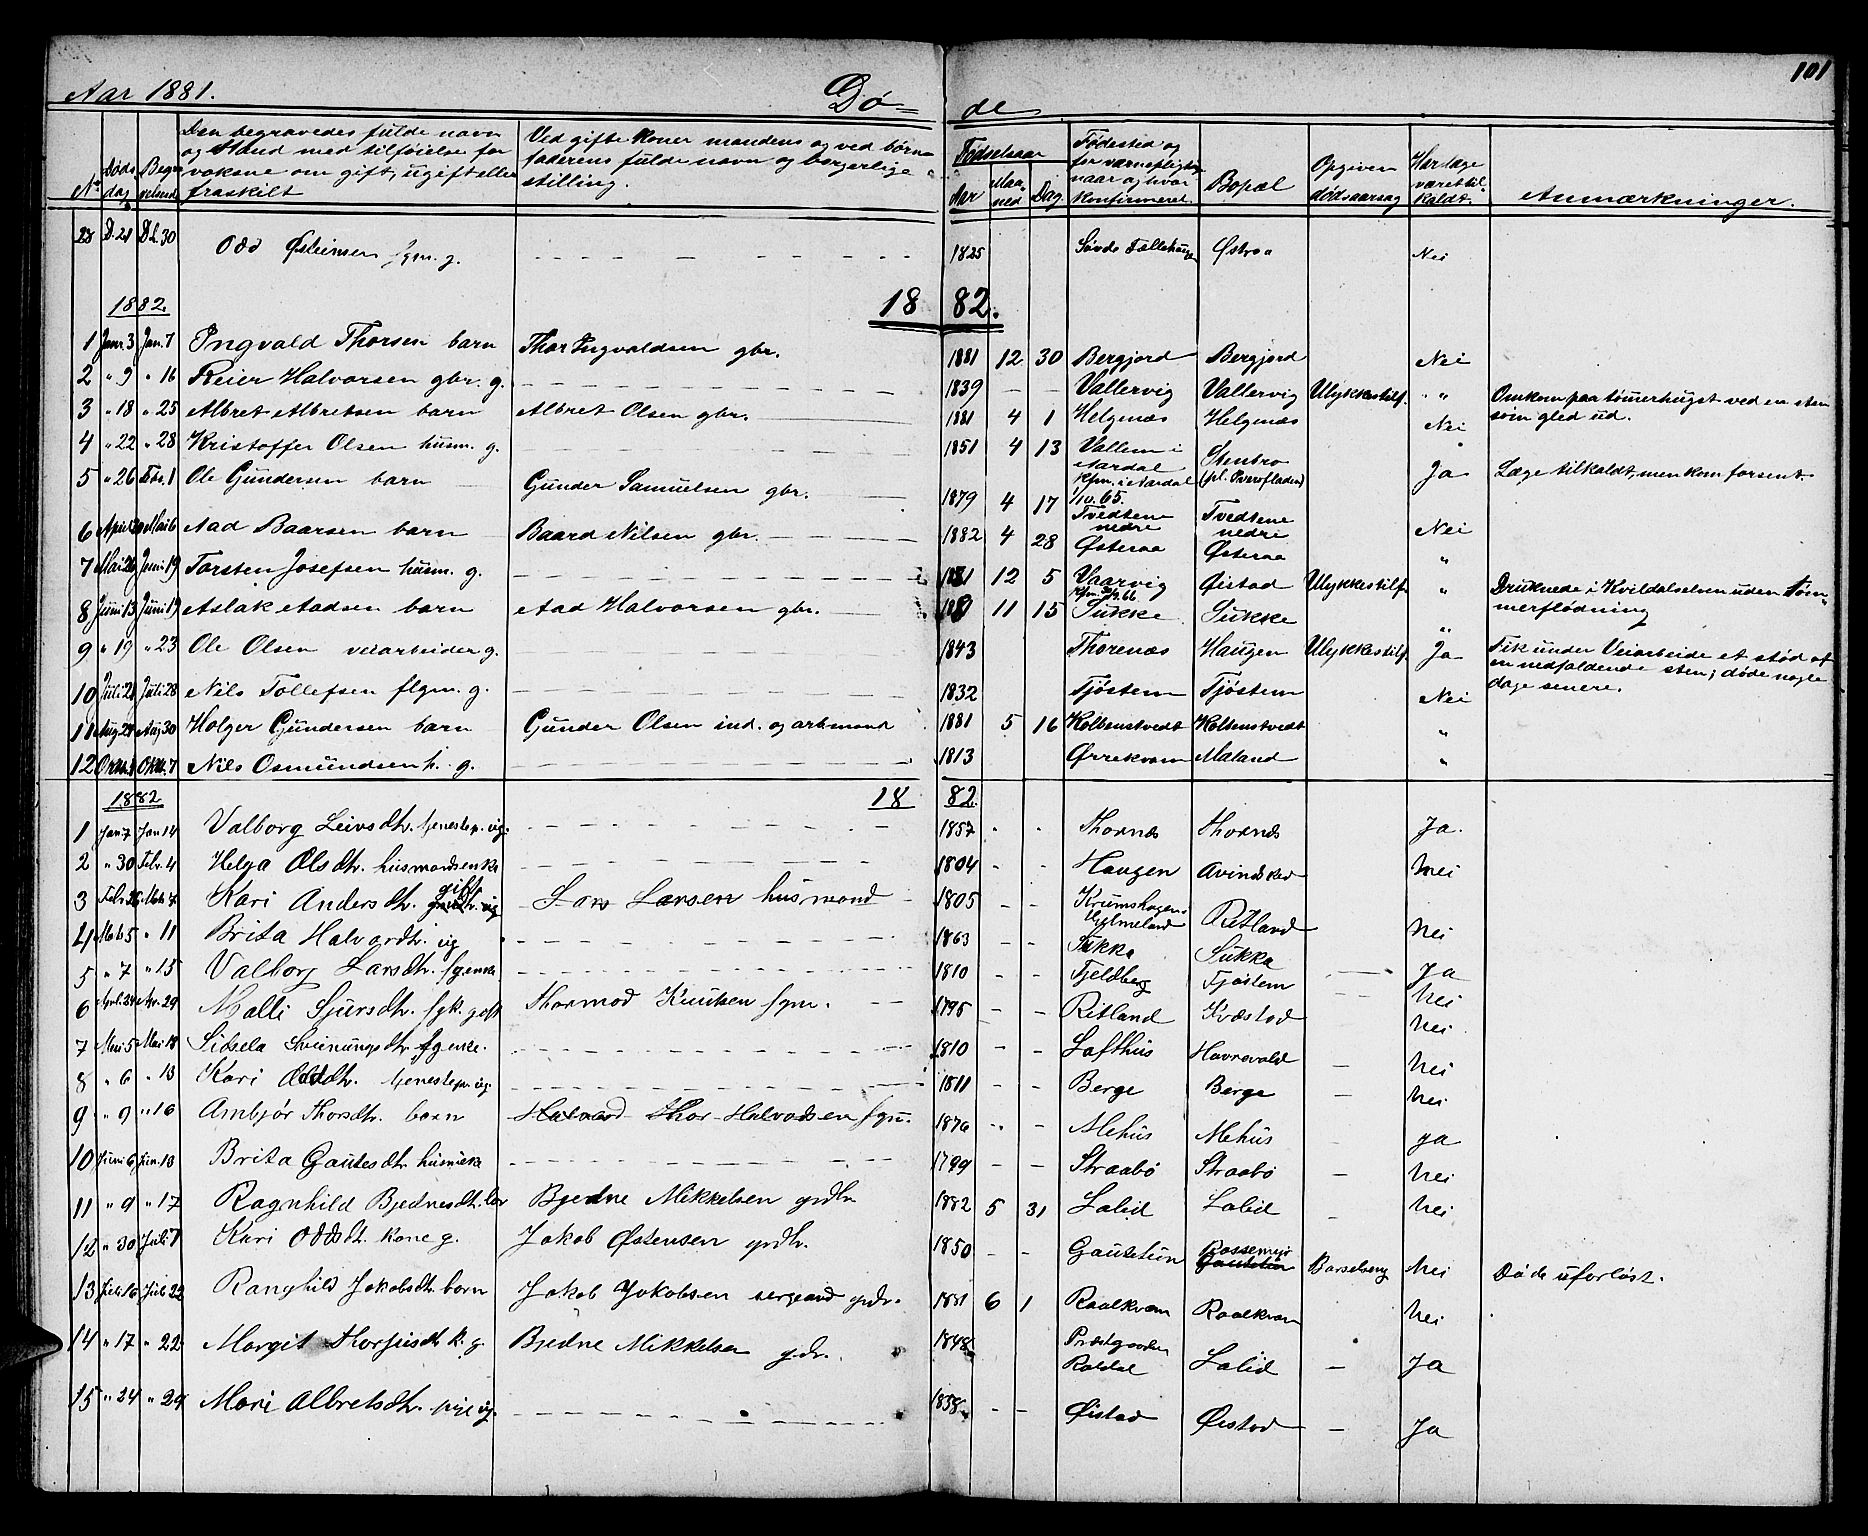 101
Aar 1881. Dø= de
No Døds dag Begravelsesd. Den begravedes fulde navn og Stand med tilføielse for voksne om gift, ugift eller fraskilt
Ved gifte koner mandens og ved børn faderens fulde navn og borgerlige stilling.
Fødselsaar Aar Maaned Dag
Fødested og for værnepligtige naar og hvor konfirmeret.
Bopæl
Opgiven dødsaarsag
Har læge været tilkaldt.
Anmærkninger.
28 D. 21 D. 30 Odd Østeinsen fgm. g. 1825 Søvde Østraa Nei
1882. 1882.
1 Jan. 3 Jan. 7 Ingvald Thorsen barn Thor Ingvaldsen gbr. 1881 12 30 Bergjord Bergjord Nei
2 " 9 " 16 Reier Halvorsen gbr. g. 1839 Vallervig Vallervig Ulykkestilf. " Omkom paa tømmerhugst ved en sten som gled ud.
3 " 18 " 25 Albret Albretsen barn Albret Olsen gbr. 1881 4 1 Helgenæs Helgenæs Nei
4 " 22 " 28 Kristoffer Olsen husm. g. 1851 4 13 Vallem i Aardal Kfm. i Aardal 1/10. 65. Stenbro "
5 " 26 Febr. 1 Ole Gundersen barn Gunder Samuelsen gbr. 1879 4 17 Tvedtene nedre Tvedtene nedre Ja Læge tilkaldt, men kom forsent.
6 April Mai 6 Aad Baarsen barn Baard Nilsen gbr. 1882 4 28 Østeraa Østeraa Nei
7 Mai 26 Juni 19 Torsten Josefsen husm. g. 12 5 Vaarvig Øistad Ulykkestilf. " Druknede i Kvildalselven uden Tømmerflødning
8 Juni 13 Juni 19 Aslak Aadsen barn Aad Halvorsen gbr. 11 15 Sukke Sukke "
9 " 19 " 23 Ole Olsen veiarbeider g. 1843 Thorenæs Haugen Ulykkestilf. Ja Fik under Veiarbeide et stød af en nedfaldende sten; døde nogle dage senere.
10 Juli 21 Juli 28 Nils Tollefsen flgm. g. 1832 Tjøstem Tjøstem Nei
11 Aug. 24 Aug 30 Holger Gundersen barn Gunder Olsen ind. og arbmand 1881 5 16 Kolbenstvedt Kolbenstvedt "
12 Oktb. Oktb. 7 Nils Osmundsen h. g. 1813 Ørrekvam Maland "
1882 1882
1 Jan 7 Jan 14 Valborg Leivsdtr. tjenestep. ug. 1857 Thornæs Thornæs Ja.
2 " 30 Febr. 4 Helga Olsdtr. husmandsenke 1804 Haugen Avindsked Nei
3 Febr. 26 Mrts 4 Kari Andersdtr. gift Lars Larsen husmand 1805 Krumshagen Hjelmeland Ritland Nei
4 Mrts 5 " 11 Brita Halvardtr. ug 1863 Sukka Sukka Ja
5 " 7 " 15 Valborg Larsdtr. fgenke 1810 Fjeldberg Tjøstem Nei
6 April. 24 Apr. 29 Malli Sjursdtr. fgk. gift Thormod Knutsen fgm. 1795 Ritland Kvæstad Nei
7 Mai 5 Mai 13 Sidsela Sveinungsdtr fgenke. 1810 Lofthus Havrevold Nei
8 " 6 " 13 Kari Oddsdtr. tjenestep. ug. 1811 Berge Berge Nei
9 " 9 " 16 Ambjør Thorsdtr. barn Halvard Thor Halvadsen fgm. 1876 Mehus Mehus ja
10 Juni 6 Jun. 13 Brita Gautesdtr. husmenke 1799 Straabø Straabø Nei
11 " 9 " 17 Ragnhild Bjednesdtr. bar Bjedne Mikkelsen grdbr 1882 5 31 Lalid Lalid Nei
12 " 30 Juli 7 Kari Oddsdtr. kone g. Jakob Østensen grdbr. 1850 Gautetun Rossemyr Gautetun Barselseng Nei Døde uforløst.
13 Juli 16 Juli 22 Ranghild Jakobsdtr barn Jakob Jakobsen sergeand grdr. 1881 6 1 Raalkvam Raalkvam Nei
14 " 17 " 22 Margit Thorjusdtr k. g. Bjedne Mikkelsen grdr. 1848 Præstgaarden Røldal Lalid Ja
15 " 24 " 29 Mari Albretsdtr. pige ug. 1838 Øistad Øistad Ja